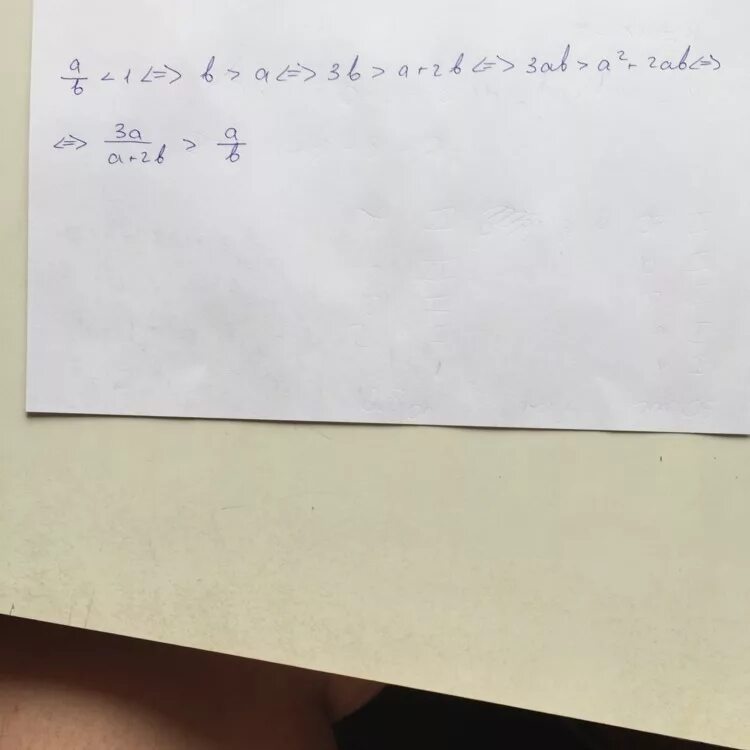 a/b < 1 <=> b > a <=> 3b > a+2b <=> 3ab > a²+2ab <=>
<=> 3a/(a+2b) > a/b